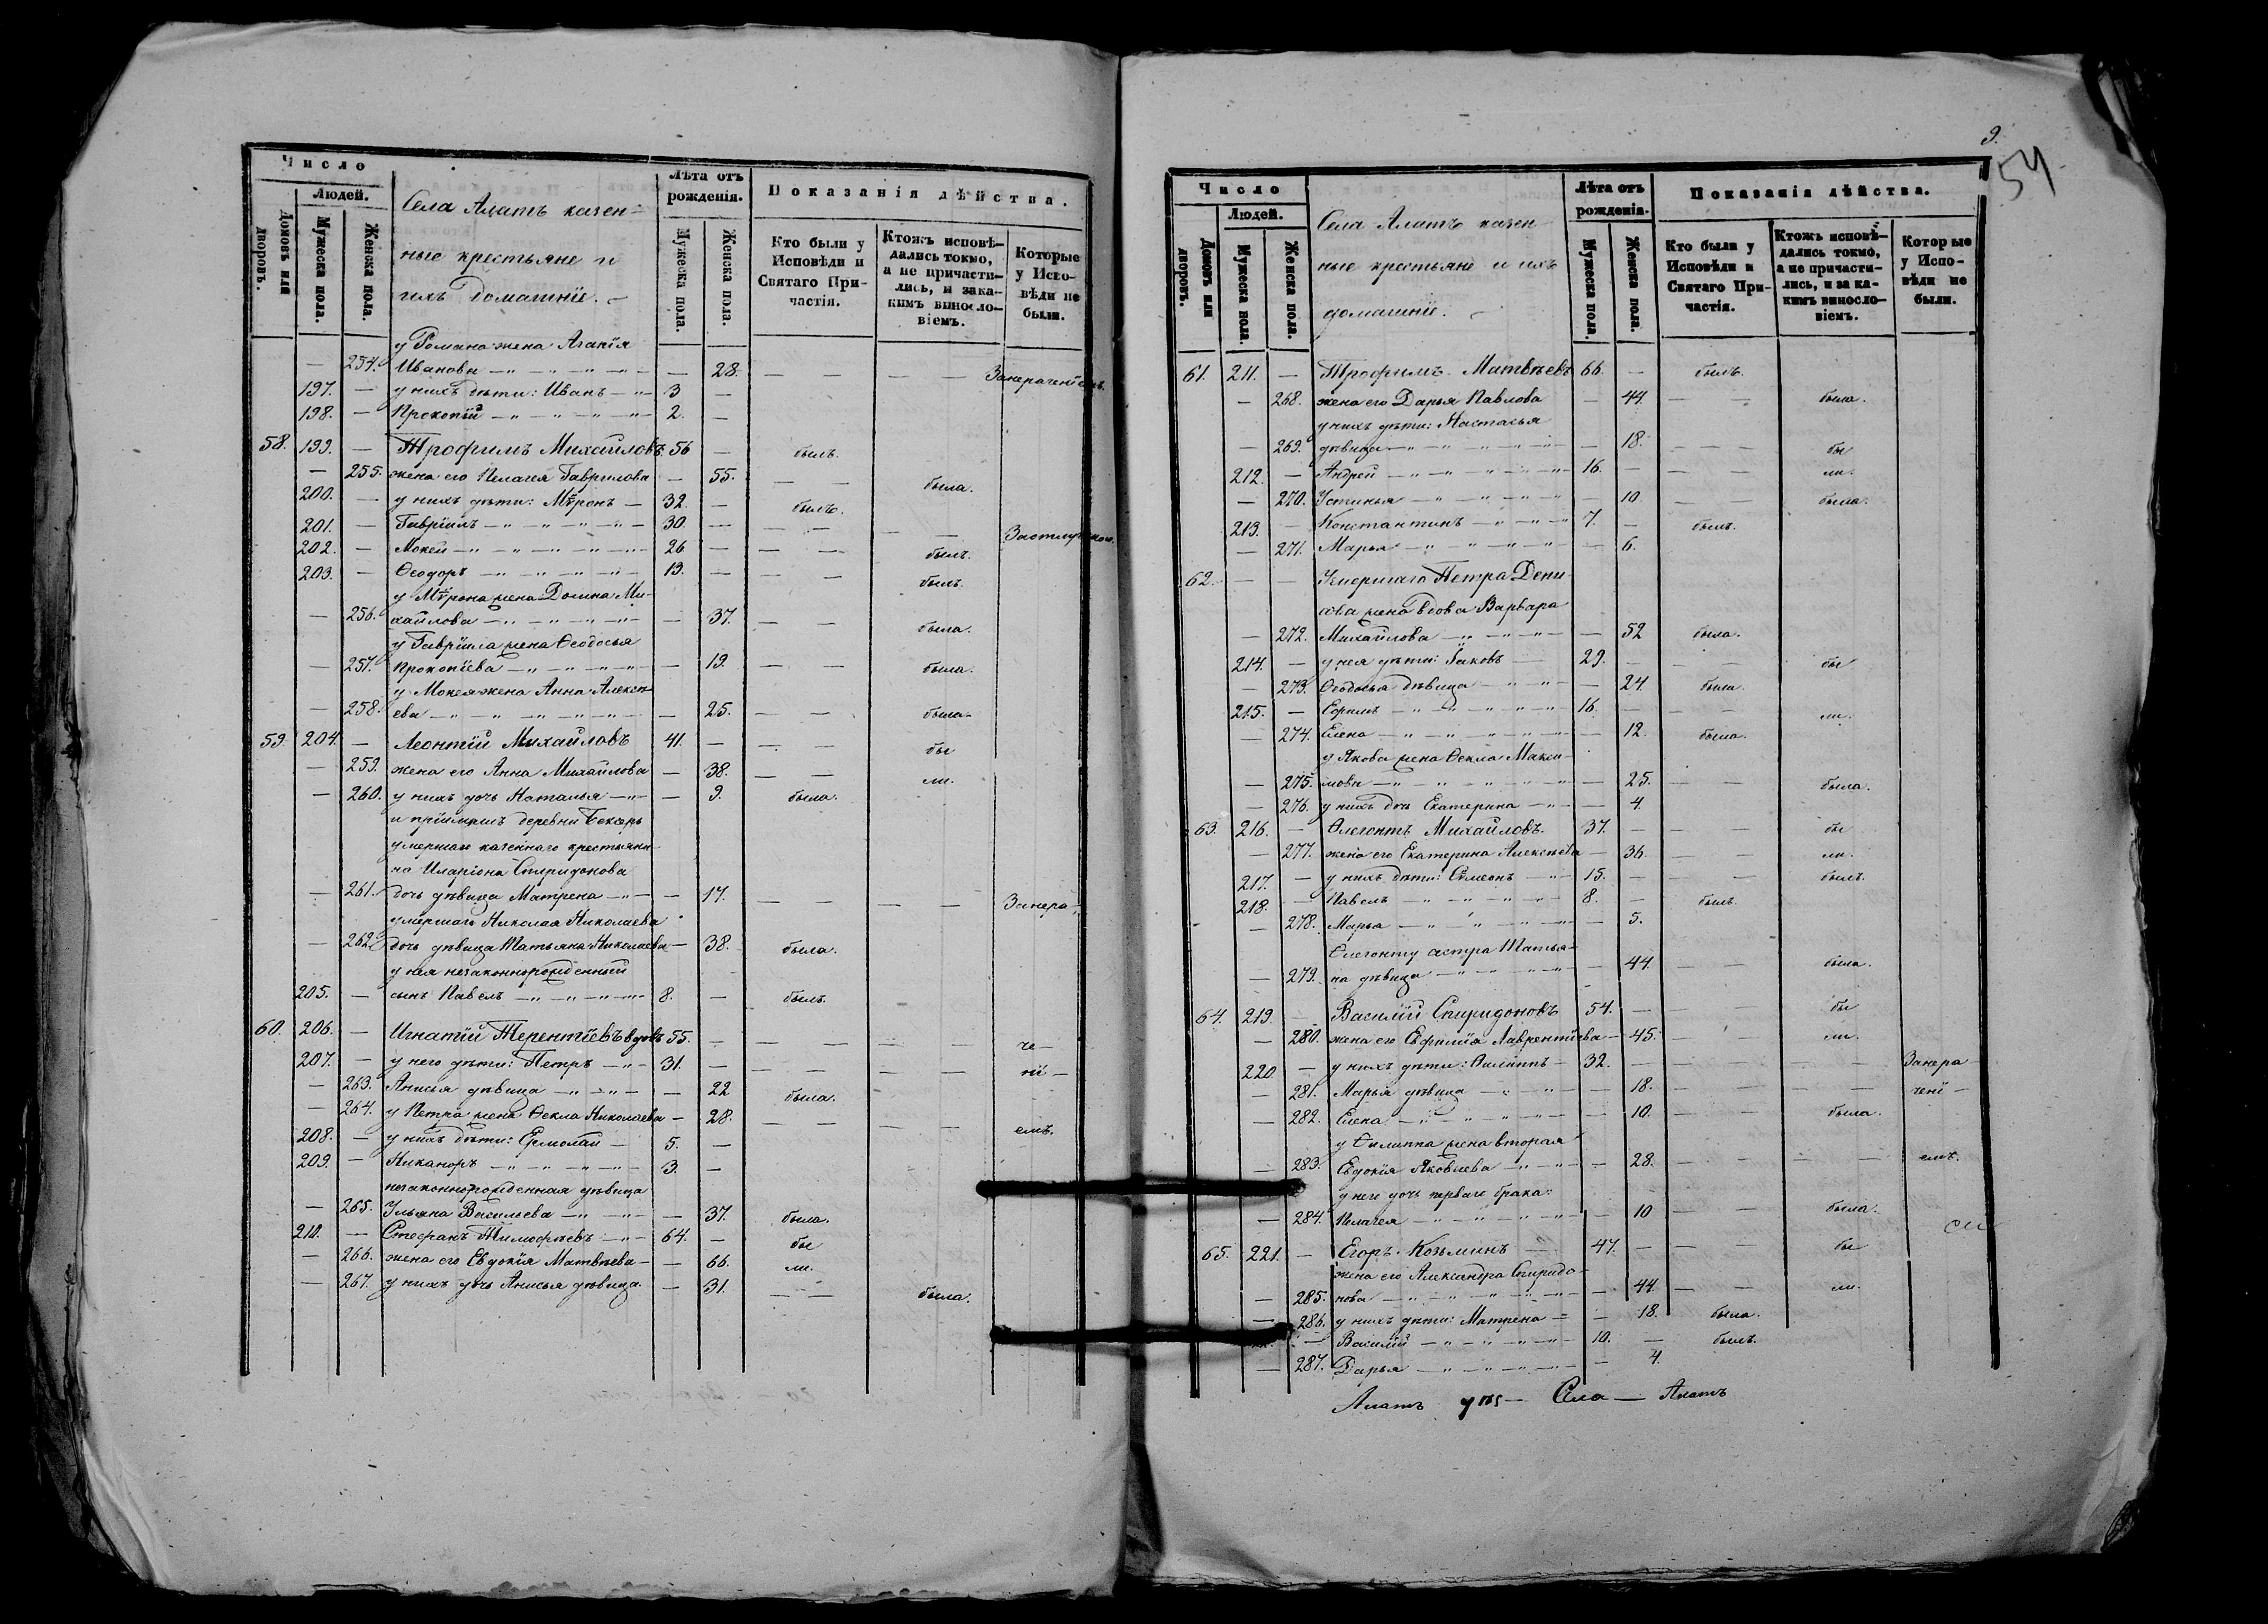 Число
Людей.
Домовъ или дворовъ.
Мужеска пола.
Женска пола.
Села Алатъ казен-
ные крестьяне и
ихъ домашніе.
Лѣта отъ рожденія.
Мужеска пола.
Женска пола.
Показанія дѣйства.
Кто были у Исповѣди и Святаго При-частія.
Ктожъ исповѣ-дались токмо, а не причасти-лись, и за ка-кимъ винословіемъ.
Которые у Испо-вѣди не были.
у Романа жена Агапія
254. Иванова — 28.
197. — у нихъ дѣти: Иванъ 3 —
198. — Прокопій 2. —
58. 199. — Трофимъ Михайловъ 56 — былъ.
— 255. жена его Пелагея Гаврилова — 55. — — была.
200. — у нихъ дѣти: Мѵронъ — 32. — былъ.
201. — Гавріилъ 30. —
202. — Мокей 26 — — — былъ.
203. — Ѳеодоръ 19. — — — былъ.
у Мѵрона жена Домна Ми-
— 256. хайлова — 37. — — была.
у Гавріила жена Ѳеодосья
— 257. Прокопіева — 19. — — была.
у Мокея жена Анна Алексѣ-
— 258. ева — 25. — — была.
59. 204. — Леонтій Михайловъ 41. — — — бы
— 259. жена его Анна Михайлова — 38. — — ли.
— 260. у нихъ дочь Наталья — 9. была.
и пріимышъ деревни
умершаго казеннаго крестьяни-
на Иларіона Спиридонова
— 261. дочь дѣвица Матрена — 17. — — — — Занера-
умершаго Николая Николаева
— 262. дочь дѣвица Татьяна Николаева — 38. была.
у нея незаконнорожденный
205. — сынъ Павелъ 8. — былъ.
60. 206. — Игнатій Терентіевъ вдовъ 55. — — — — — че-
207. — у него дѣти: Петръ 31. — — — — — ні-
— 263. Анисья дѣвица — 22 была.
— 264. у Петра жена Ѳекла Николаева — 28. — — — — емъ.
208. — у нихъ дѣти: Ермолай — 5. —
209. — Никаноръ 3. —
незаконнорожденная дѣвица
— 265. Ульяна Васильева — 37. была.
210. — Стефанъ Тимофѣевъ 64. — бы
— 266. жена его Евдокія Матвѣева — 66. ли.
— 267. у нихъ дочь Анисья дѣвица — 31. — — была.
9.
54
Число
Людей.
Домовъ или дворовъ.
Мужеска пола.
Женска пола.
Села Алатъ казен-
ные крестьяне и ихъ
домашніе.
Лѣта отъ рожденія.
Мужеска пола.
Женска пола.
Показанія дѣйства.
Кто были у Исповѣди и Святаго При-частія.
Ктожъ исповѣ-дались токмо, а не причасти-лись, и за ка-кимъ винословіемъ.
Которые у Испо-вѣди не были.
61. 211. — Трофимъ Матвѣевъ 66. — былъ.
— 268. жена его Дарья Павлова — 44. — — была.
у нихъ дѣти: Настасья
— 269. дѣвица — 18. — — бы
212. — Андрей 16. — — — ли.
— 270. Устинья — 10. — — была.
213. — Константинъ 7. — былъ.
— 271. Марья — 6.
62. — — Умершаго Петра Дени-
жена вдова Варвара
— 272. Михайлова — 52 была.
214. — у нея дѣти: Іаковъ 29. — — — бы
— 273. Ѳеодосья дѣвица — 24. была.
215. — Ефимъ 16. — — — ли.
— 274. Елена — 12. была.
у Якова жена Ѳекла Макси-
— 275. мова — 25. — — была.
— 276. у нихъ дочь Екатерина — 4.
63. 216. — Флегонтъ Михайловъ. 37. — — — бы
— 277. жена его Екатерина Алексѣева — 36. — — ли.
217. — у нихъ дѣти: Сѵмеонъ 15. — — — былъ
218. — Павелъ 8. — былъ.
— 278. Марья — 5.
Флегонту сестра Татья-
— 279. на дѣвица — 44. — — была.
64. 219. — Василій Спиридоновъ 54. — — — бы
— 280. жена его Евфимія Лаврентіева — 45. — — ли.
220. — у нихъ дѣти: Филиппъ — 32. — — — — Занера-
— 281. Марья дѣвица — 18. — — — чені-
— 282. Елена — 10. — — была.
у Филиппа жена вторая
— 283. Евдокія Яковлева — 28. — — — — емъ.
у него дочь перваго брака:
— 284. Пелагея — 10 — — была.
65. 221. — Егоръ Козьминъ 47. — — — бы
жена его Александра Спиридо-
— 285. нова — 44. — — ли.
— 286. у нихъ дѣти: Матрена — 18. была.
— Василій 10. — былъ.
— 287. Дарья — 4.
Алатъ Села — Алатъ